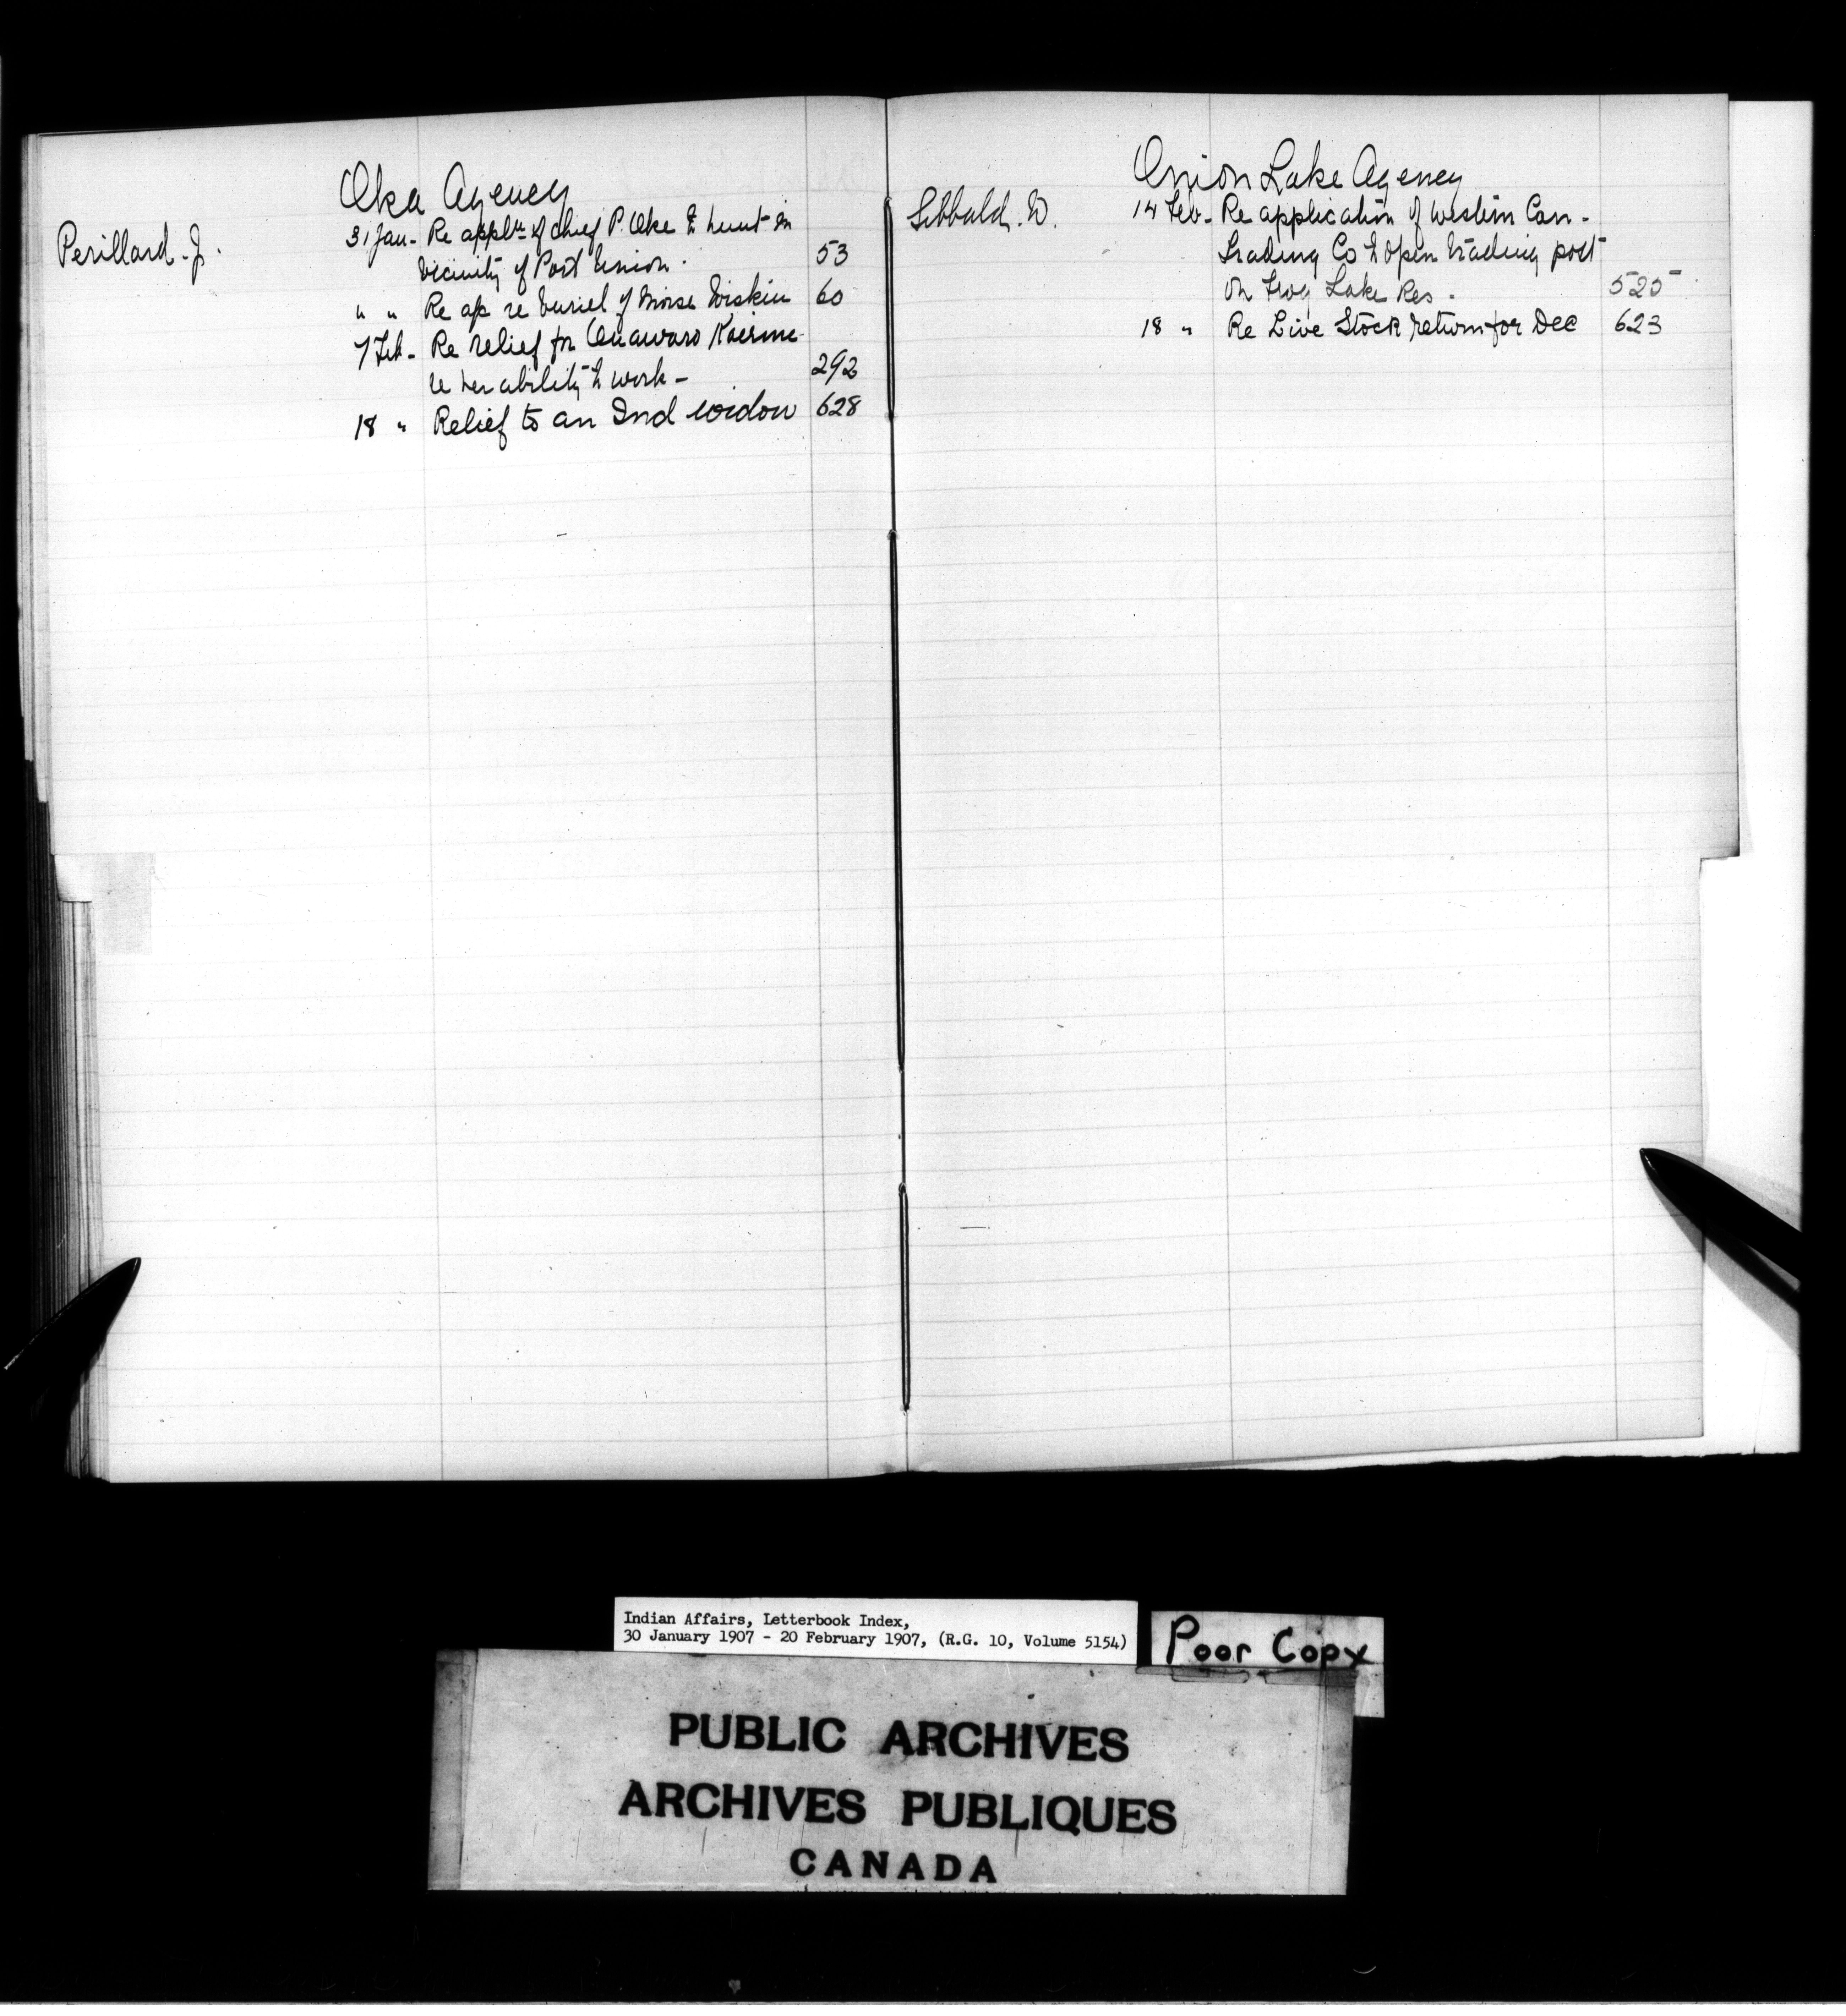 Oka Agency
Perillard. J.
31 Jan - Re appltn of chief P. Oke to hunt in
vicinity of Port Union. 53
" " Re ap re buriel of 60
7 Feb - Re relief for
re her ability to work - 292
18 " Relief to an Ind widow 628
Onion Lake Agency
Sibbald. W.
14 Feb - Re application of Western Can -
Trading Co to open trading post
on Frog Lake Res. 525
18 " Re Live Stock return for Dec 623
Indian Affairs, Letterbook Index,
30 January 1907 - 20 February 1907, (R.G. 10, Volume 5154)
Poor Copy
PUBLIC ARCHIVES
ARCHIVES PUBLIQUES
CANADA